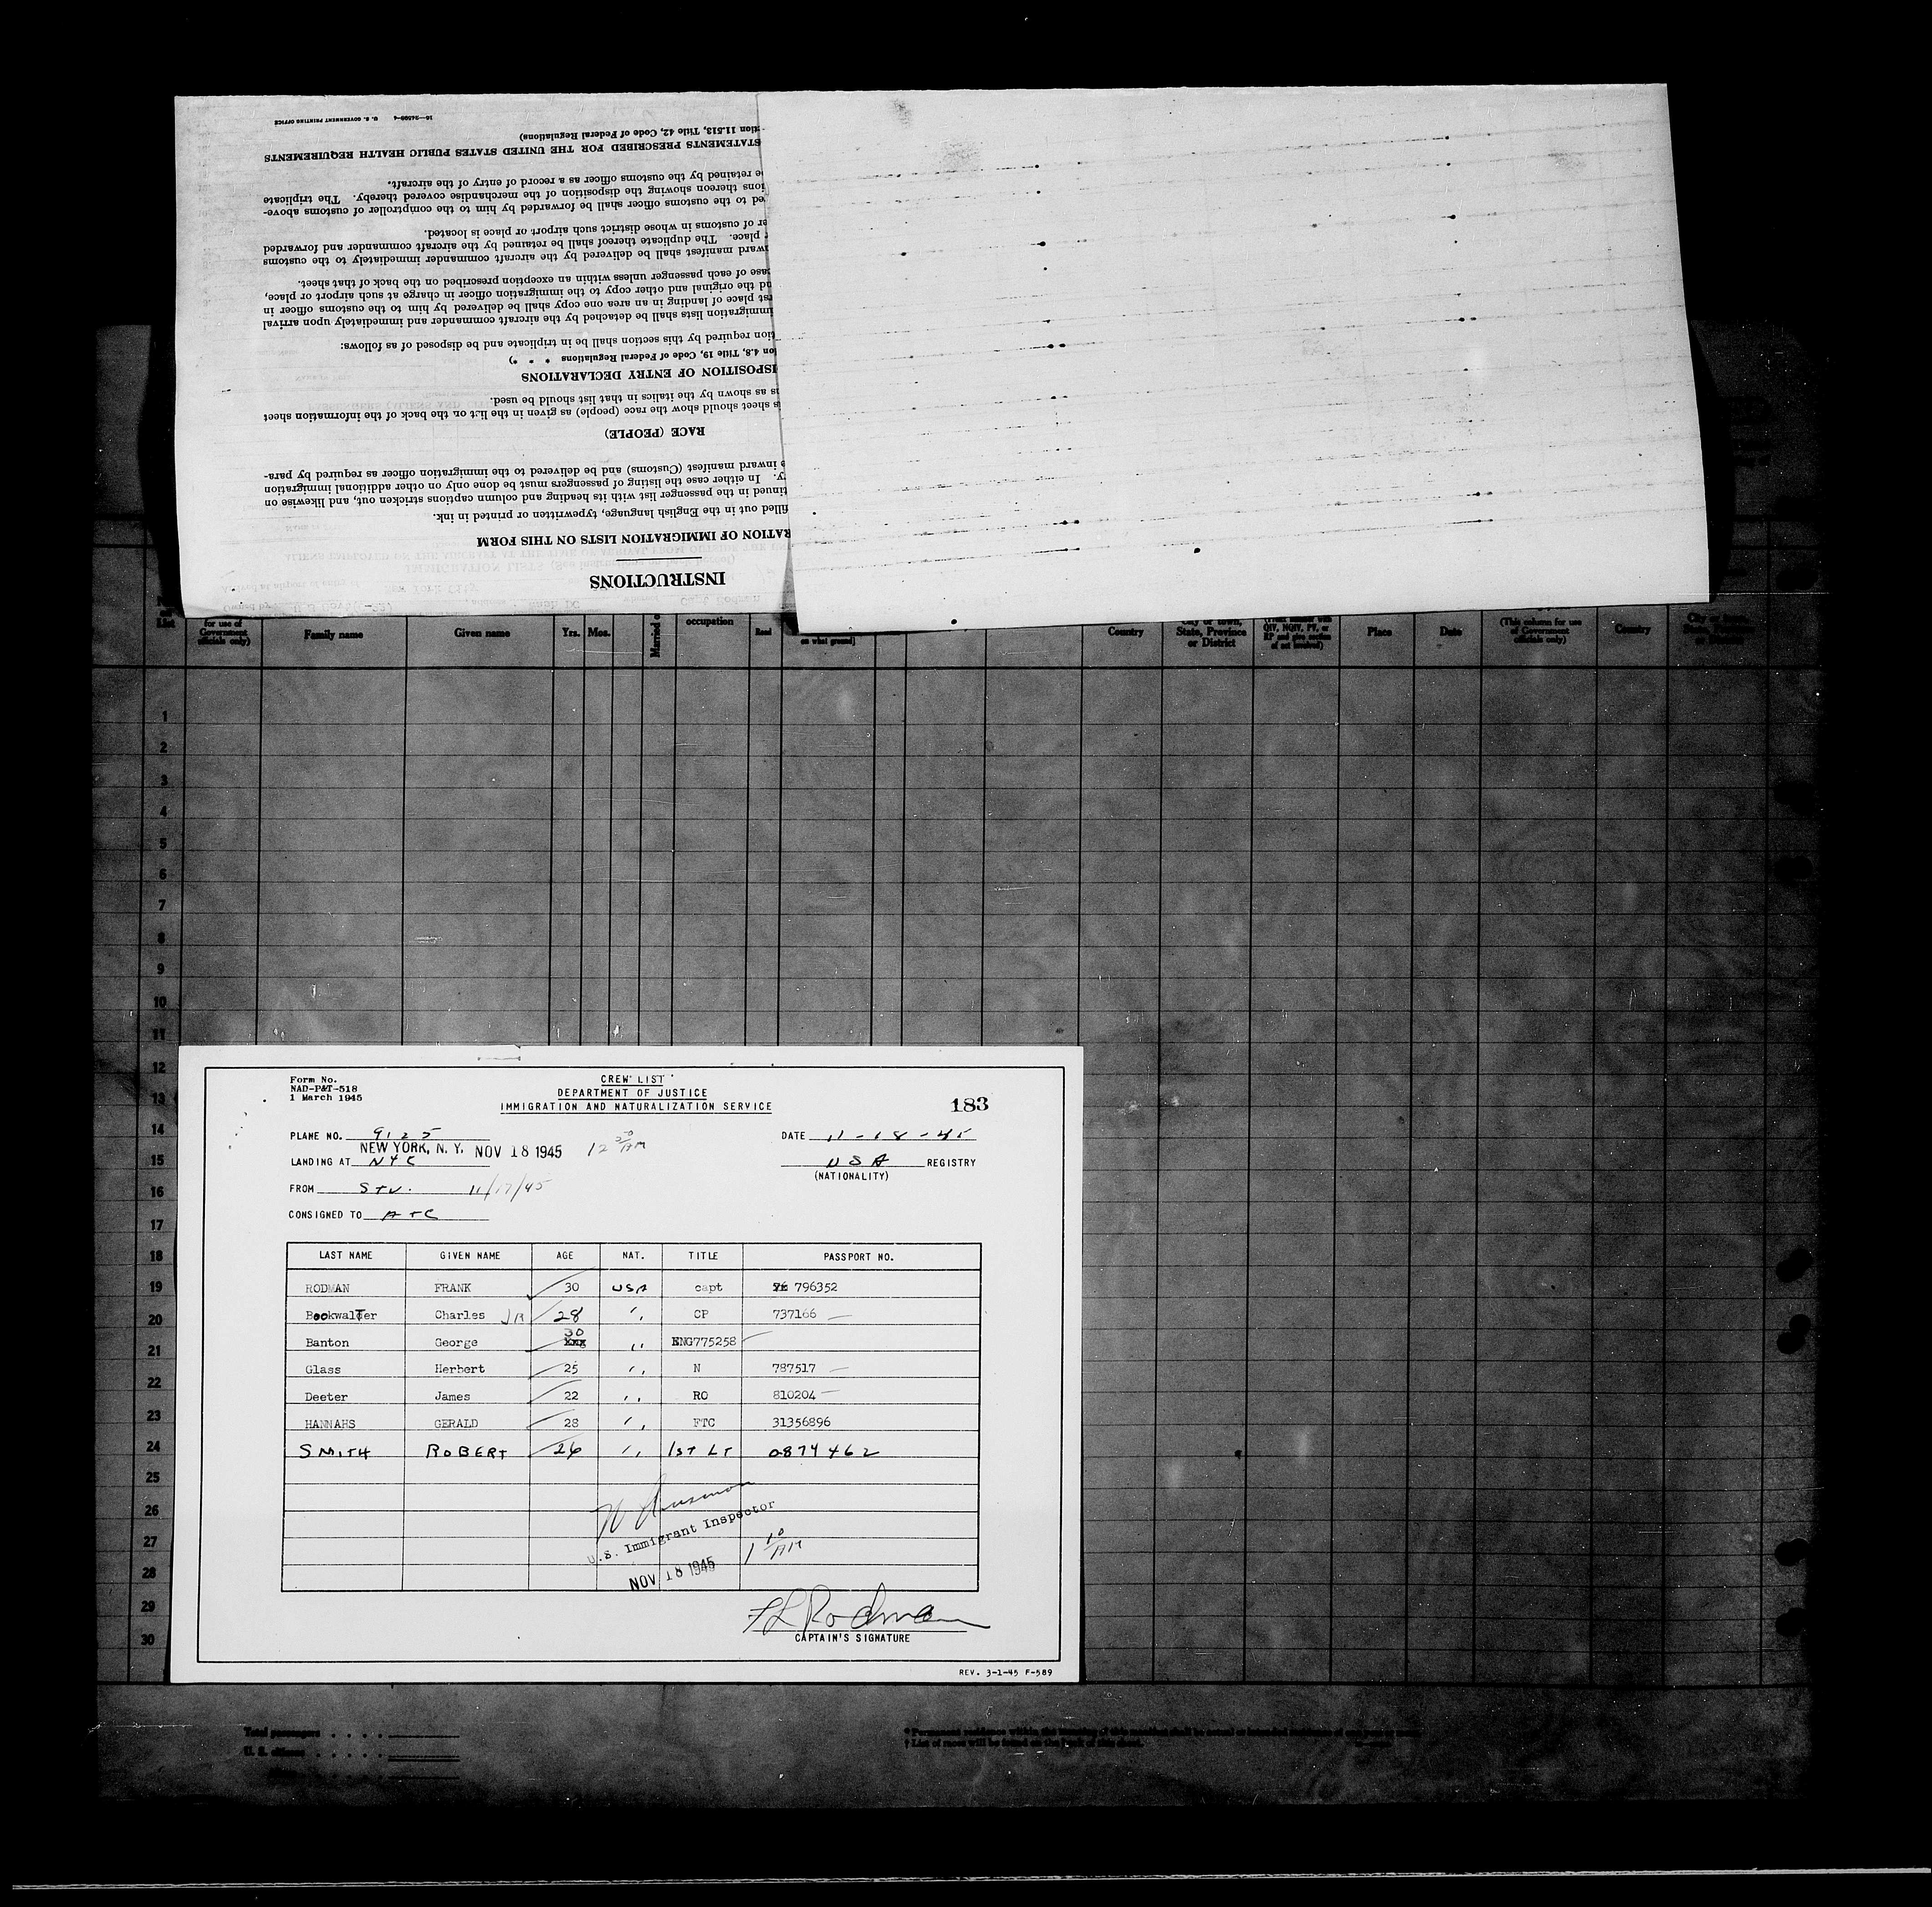 16—24598-4 U. S. GOVERNMENT PRINTING OFFICE
INSTRUCTIONS
RATION OF IMMIGRATION LISTS ON THIS FORM
filled out in the English language, typewritten or printed in ink.
tinued in the passenger list with its heading and column captions stricken out, and likewise on
y. In either case the listing of passengers must be done only on other additional immigration
e inward manifest (Customs) and be delivered to the immigration officer as required by para-
RACE (PEOPLE)
s sheet should show the race (people) as given in the list on the back of the information sheet
s as shown by the italics in that list should be used.
ISPOSITION OF ENTRY DECLARATIONS
ion 4.8, Title 19, Code of Federal Regulations * * *)
tion required by this section shall be in triplicate and be disposed of as follows:
immigration lists shall be detached by the aircraft commander and immediately upon arrival
rst place of landing in an area one copy shall be delivered by him to the customs officer in
nd the original and other copy to the immigration officer in charge at such airport or place,
ase of each passenger unless within an exception prescribed on the back of that sheet.
ward manifest shall be delivered by the aircraft commander immediately to the customs
r place. The duplicate thereof shall be retained by the aircraft commander and forwarded
er of customs in whose district such airport or place is located.
ed to the customs officer shall be forwarded by him to the comptroller of customs above-
ions thereon showing the disposition of the merchandise covered thereby. The triplicate
e retained by the customs officer as a record of entry of the aircraft.
STATEMENTS PRESCRIBED FOR THE UNITED STATES PUBLIC HEALTH REQUIREMENTS
tion 11.513, Title 42, Code of Federal Regulations)
List
for use of Government officials only)
Family name
Given name
Yrs. Mos.
Married o
occupation
Read
on what ground]
Country
City or town, State, Province or District
QIV, NQIV, PV, or RP and give section of act involved)
Place
Date
(This column for use of Government officials only)
Country
1
2
3
4
5
6
7
8
9
10
11
12
13
14
15
16
17
18
19
20
21
22
23
24
25
26
27
28
29
30
Form No.
NAD-P&T-518
1 March 1945
CREW LIST
DEPARTMENT OF JUSTICE
IMMIGRATION AND NATURALIZATION SERVICE
183
PLANE NO. 9125
DATE 11-18-45
NEW YORK, N. Y. NOV 18 1945 12 50 AM
LANDING AT NYC
USA REGISTRY
(NATIONALITY)
FROM STV. 11/17/45
CONSIGNED TO ATC
LAST NAME GIVEN NAME AGE NAT. TITLE PASSPORT NO.
RODMAN FRANK 30 USA capt 796352
BookwalTer Charles JR 28 " CP 737166
Banton George 30 " ENG775258
Glass Herbert 25 " N 787517
Deeter James 22 " RO 810204
HANNAHS GERALD 28 " FTC 31356896
SMITH ROBERT 26 " 1ST LT 0874462
U.S. Immigrant Inspector
1 10 AM
NOV 18 1945
F L Rodman
CAPTAIN'S SIGNATURE
REV. 3-1-45 F-589
Total passengers . . . .
U. S. citizens . . . . .
† List of races will be found on the back of this sheet.